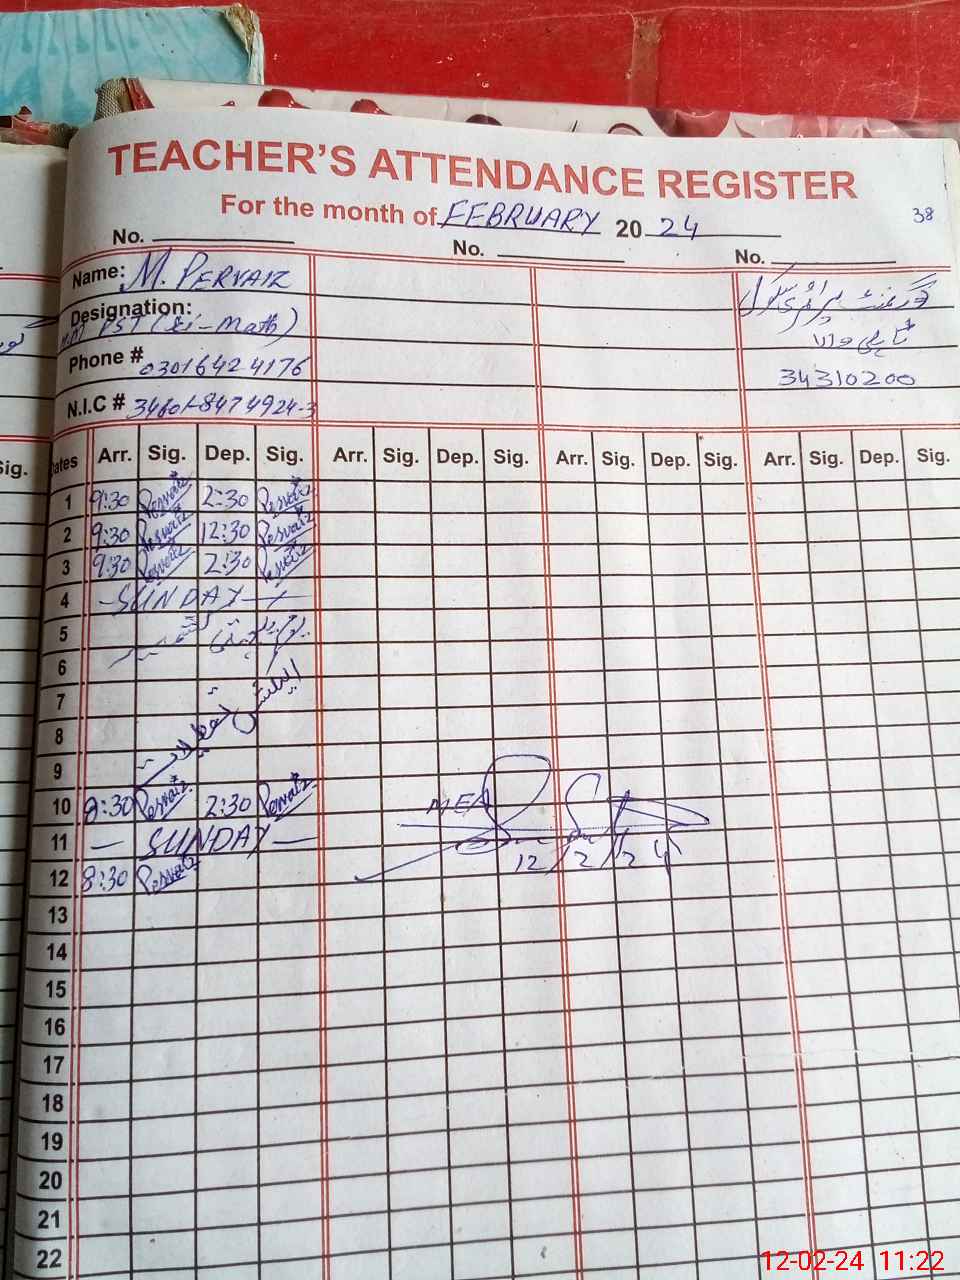 TEACHER'S ATTENDANCE REGISTER
For the month of FEBRUARY 20 24
38
No. No. No.
Name: M. PERVAIZ
Designation:
PST (Sci-Math)
گورنمنٹ پرائمری سکول
Phone # 03016424176
34310200
N.I.C # 34601-8474924-3
Sig. Dates Arr. Sig. Dep. Sig. Arr. Sig. Dep. Sig. Arr. Sig. Dep. Sig. Arr. Sig. Dep. Sig.
1 9:30 Pervaiz 2:30 Pervaiz
2 9:30 Pervaiz 12:30 Pervaiz
3 9:30 Pervaiz 2:30 Pervaiz
4 - SUNDAY -
5
6
7
8
9
10 8:30 Pervaiz 2:30 Pervaiz
MEA
11 - SUNDAY -
12/2/24
12 8:30 Pervaiz
13
14
15
16
17
18
19
20
21
22
12-02-24 11:22